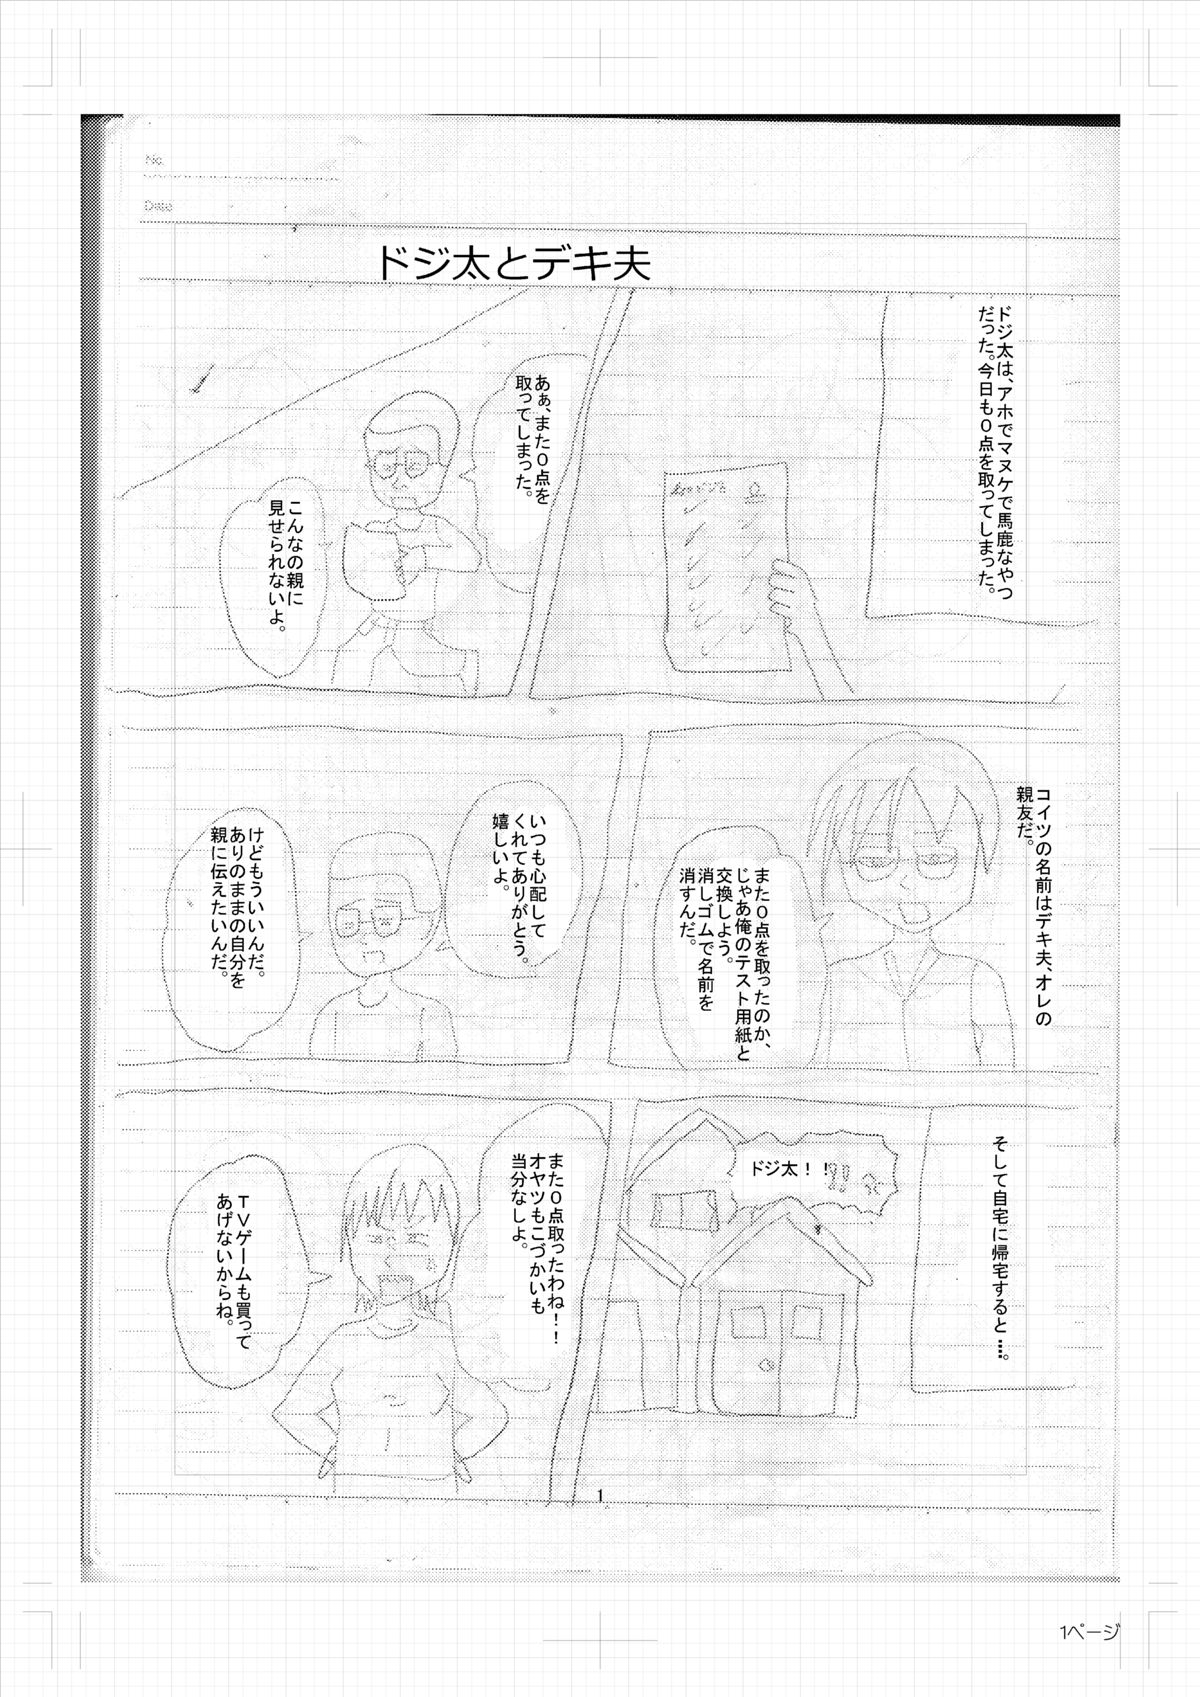 No.
Date
ドジ太とデキ夫
ドジ太は、アホでマヌケで馬鹿なやつ
だった。今日も０点を取ってしまった。
あぁ、また０点を
取ってしまった。
こんなの親に
見せられないよ。
コイツの名前はデキ夫、オレの
親友だ。
また０点を取ったのか、
じゃあ俺のテスト用紙と
交換しよう。
消しゴムで名前を
消すんだ。
いつも心配して
くれてありがとう。
嬉しいよ。
けどもういいんだ。
ありのままの自分を
親に伝えたいんだ。
そして自宅に帰宅すると…。
ドジ太！！
また０点取ったわね！！
オヤツもこづかいも
当分なしよ。
ＴＶゲームも買って
あげないからね。
1
1ページ